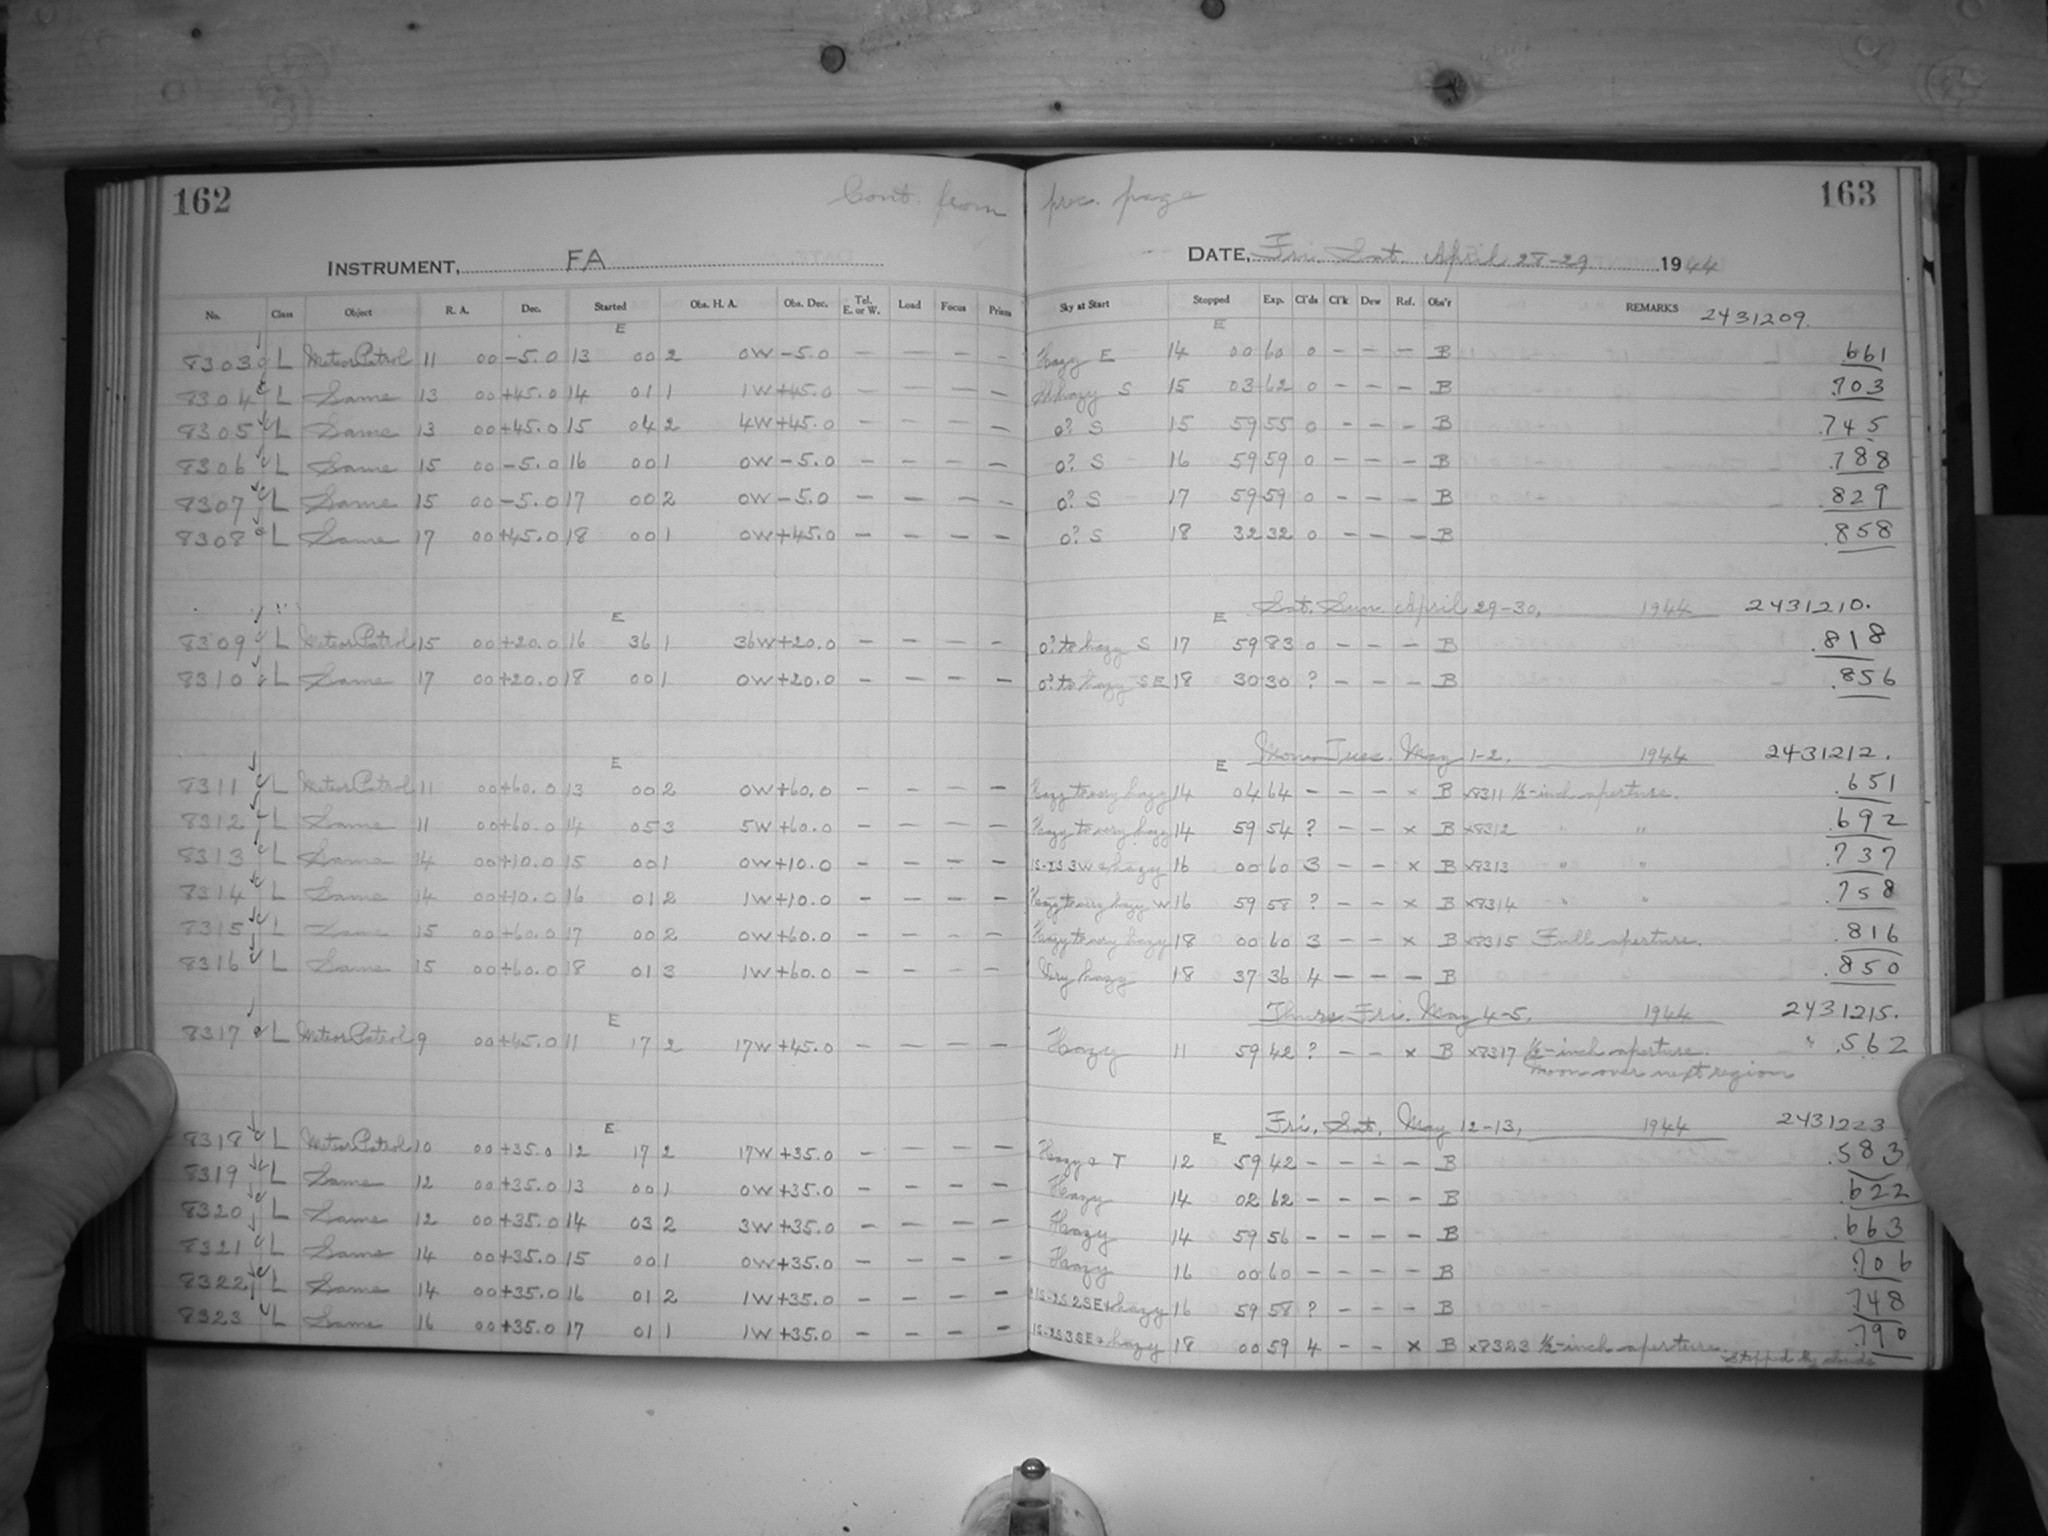 162 Cont. from prec. page 163
INSTRUMENT, FA DATE, Fri. Sat. April 28-29 1944
No. Class Object R. A. Dec. Started Obs. H. A. Obs. Dec. Tel. E. or W. Load Focus Prism Sky at Start Stopped Exp. Cl'ds Cl'k Dew Ref. Obs'r REMARKS 2431209.
E E
8303 L Meteor Patrol 11 00 -5.0 13 00 2 0W -5.0 — — — — Hazy E 14 00 60 0 — — — B .661
8304 L Same 13 00 +45.0 14 01 1 1W +45.0 — — — — hazy S 15 03 62 0 — — — B .703
8305 L Same 13 00 +45.0 15 04 2 4W +45.0 — — — — 0? S 15 59 55 0 — — — B .745
8306 L Same 15 00 -5.0 16 00 1 0W -5.0 — — — — 0? S 16 59 59 0 — — — B .788
8307 L Same 15 00 -5.0 17 00 2 0W -5.0 — — — — 0? S 17 59 59 0 — — — B .829
8308 L Same 17 00 +45.0 18 00 1 0W +45.0 — — — — 0? S 18 32 32 0 — — — B .858
Sat. Sun. April 29-30, 1944 2431210.
E E
8309 L Meteor Patrol 15 00 +20.0 16 36 1 36W +20.0 — — — 0? to hazy S 17 59 83 0 — — — B .818
8310 L Same 17 00 +20.0 18 00 1 0W +20.0 — — — — 0? to hazy SE 18 30 30 ? — — — B .856
Mon. Tues. May 1-2, 1944 2431212.
E E
8311 L Meteor Patrol 11 00 +60.0 13 00 2 0W +60.0 — — — — Hazy to very hazy 14 04 64 — — — × B ×8311 ½-inch aperture. .651
8312 L Same 11 00 +60.0 14 05 3 5W +60.0 — — — — Hazy to very hazy 14 59 54 ? — — × B ×8312 " " .692
8313 L Same 14 00 +10.0 15 00 1 0W +10.0 — — — — 1S-2S 3W & hazy 16 00 60 3 — — × B ×8313 " " .737
8314 L Same 14 00 +10.0 16 01 2 1W +10.0 — — — — Hazy to very hazy W 16 59 58 ? — — × B ×8314 " " .758
8315 L Same 15 00 +60.0 17 00 2 0W +60.0 — — — — Hazy to very hazy 18 00 60 3 — — × B ×8315 Full aperture. .816
8316 L Same 15 00 +60.0 18 01 3 1W +60.0 — — — — Very hazy 18 37 36 4 — — — B .850
Thurs. Fri. May 4-5, 1944 2431215.
E
8317 L Meteor Patrol 9 00 +45.0 11 17 2 17W +45.0 — — — — Hazy 11 59 42 ? — — × B ×8317 ½-inch aperture. " .562
Moon over next region
Fri. Sat. May 12-13, 1944 2431223
E E
8318 L Meteor Patrol 10 00 +35.0 12 17 2 17W +35.0 — — — — Hazy & T 12 59 42 — — — — B .583
8319 L Same 12 00 +35.0 13 00 1 0W +35.0 — — — — Hazy 14 02 62 — — — — B .622
8320 L Same 12 00 +35.0 14 03 2 3W +35.0 — — — — Hazy 14 59 56 — — — — B .663
8321 L Same 14 00 +35.0 15 00 1 0W +35.0 — — — — Hazy 16 00 60 — — — — B .706
8322 L Same 14 00 +35.0 16 01 2 1W +35.0 — — — — 1S-2S 2SE & hazy 16 59 58 ? — — — B .748
8323 L Same 16 00 +35.0 17 01 1 1W +35.0 — — — — 1S-2S 3SE & hazy 18 00 59 4 — — × B ×8323 ½-inch aperture. .790
Stopped by clouds